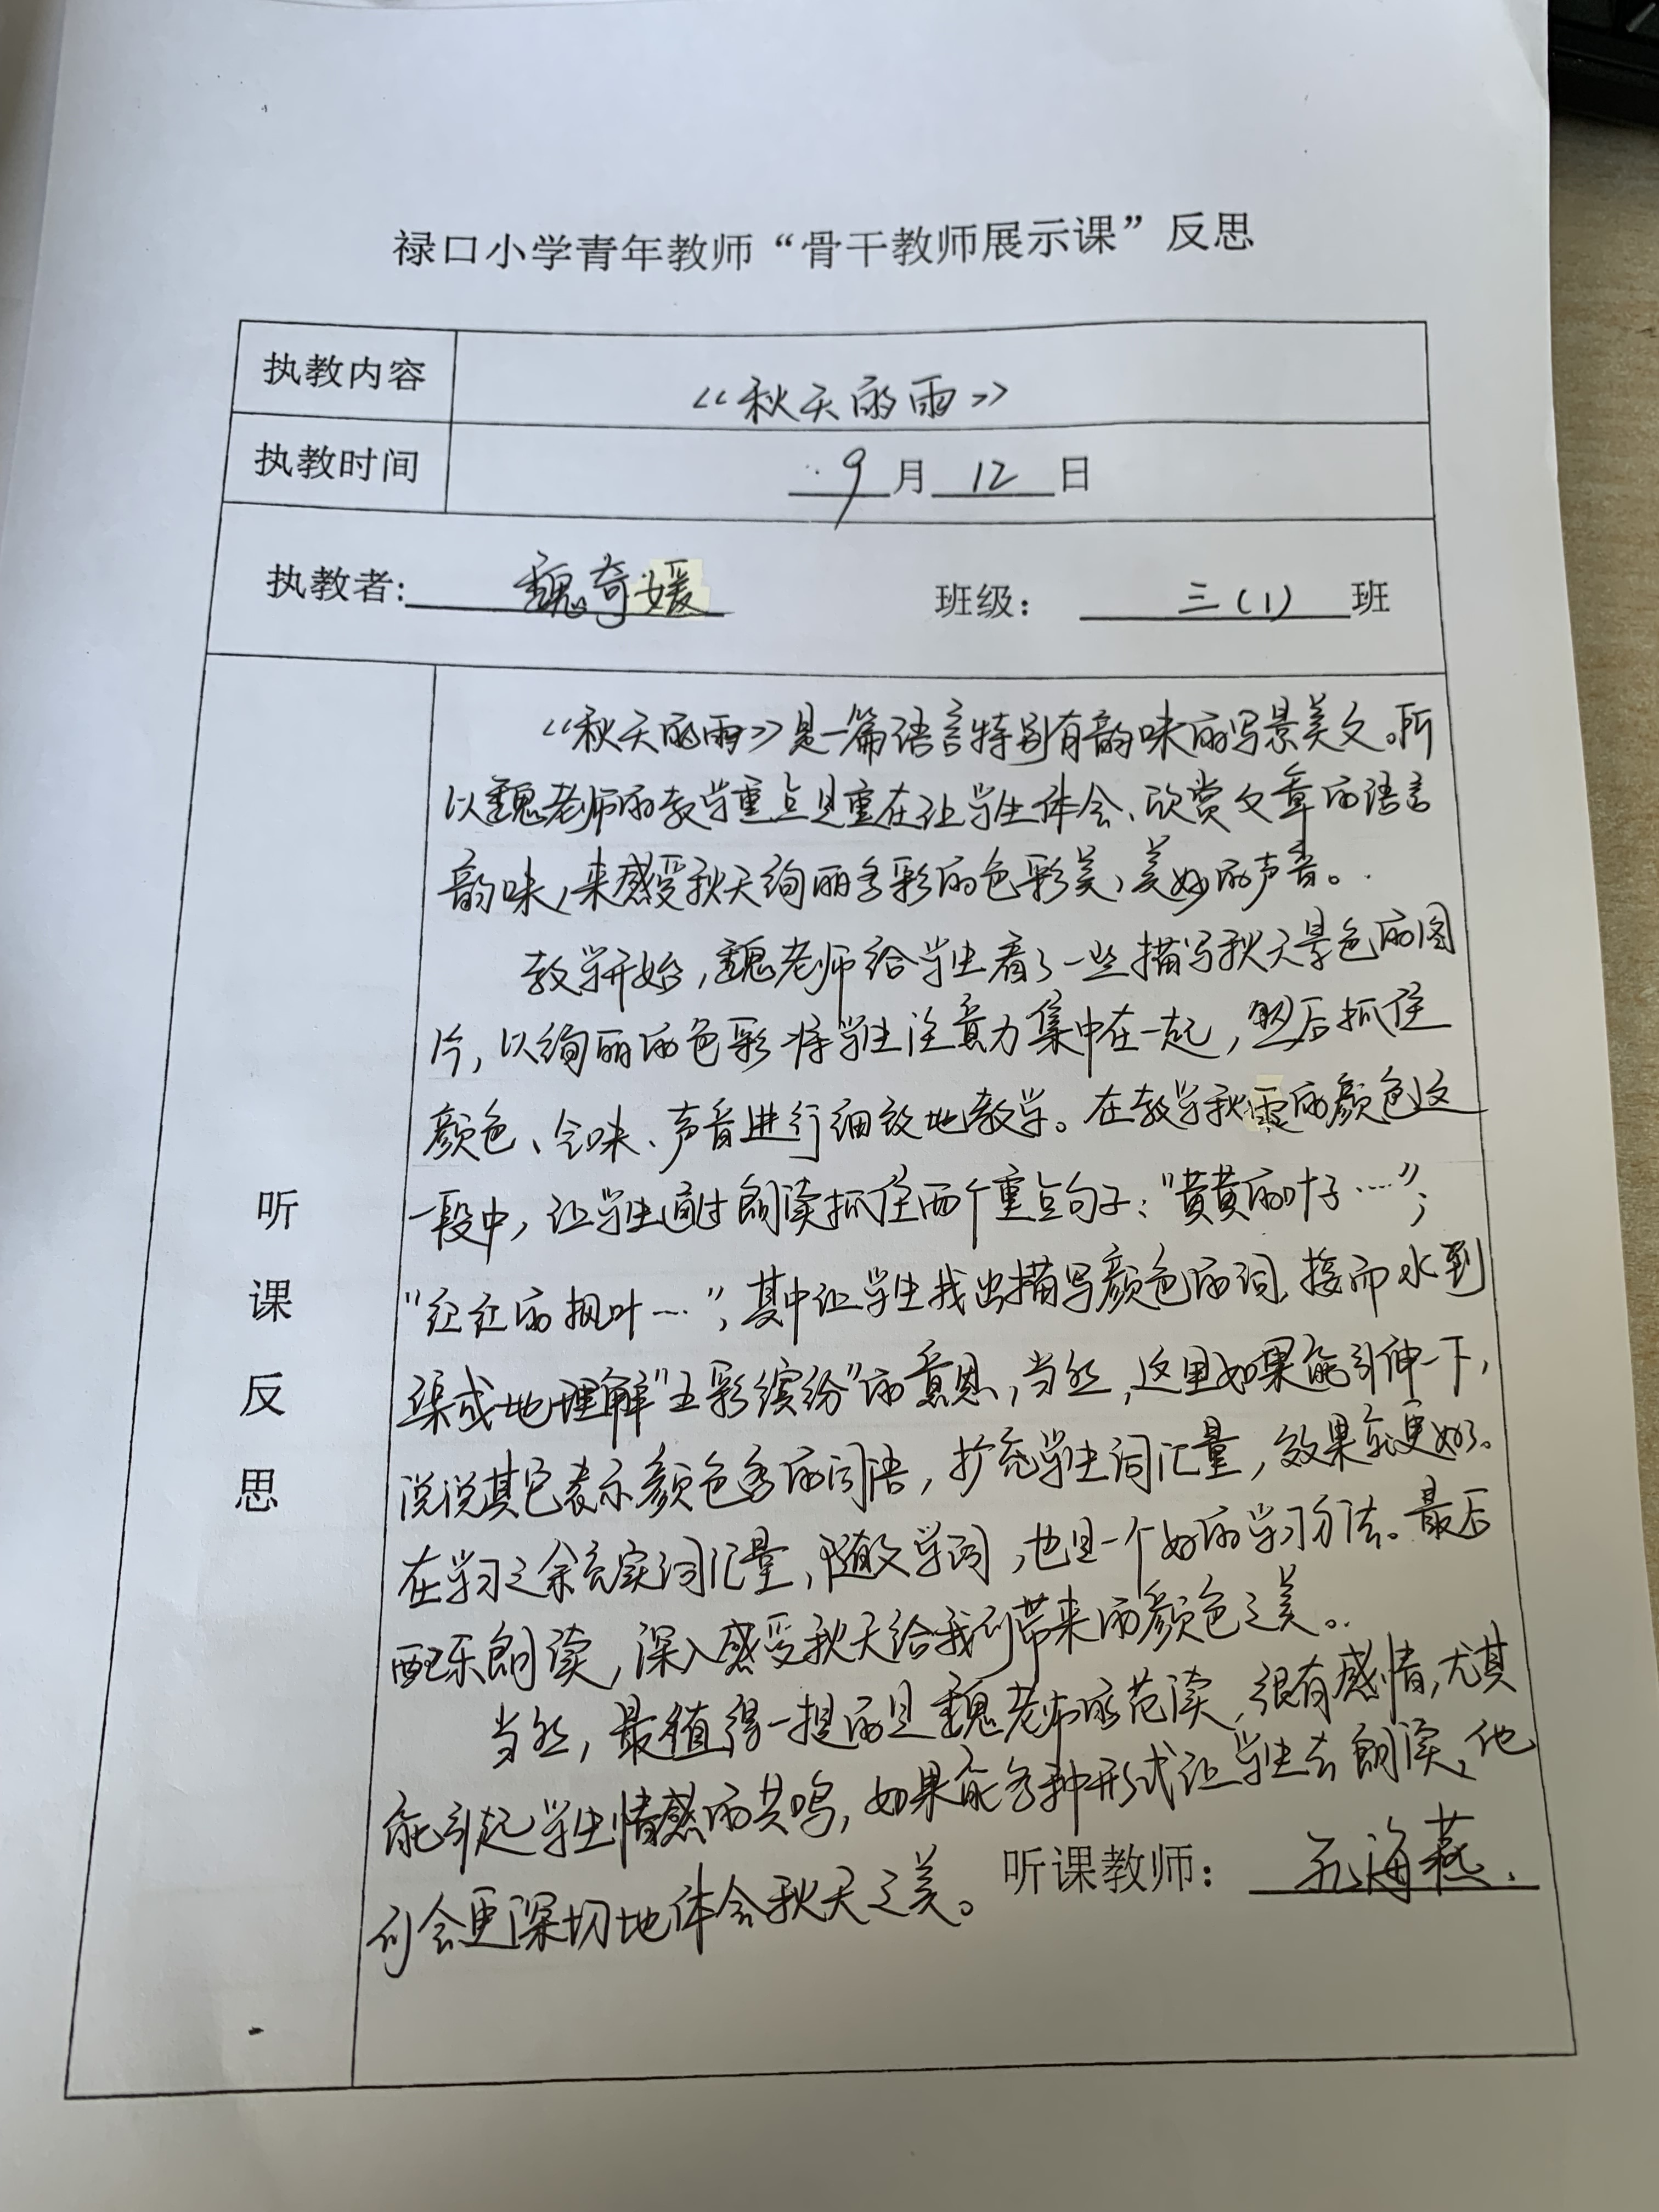 禄口小学青年教师“骨干教师展示课”反思
执教内容
《秋天的雨》
执教时间
9月12日
执教者:魏奇媛 班级：三(1)班
听课反思
《秋天的雨》是一篇语言特别有韵味的写景美文。所
以魏老师的教学重点是重在让学生体会、欣赏文章的语言
韵味,来感受秋天绚丽多彩的色彩美,美妙的声音。
教学开始,魏老师给学生看了一些描写秋天景色的图
片,以绚丽的色彩将学生注意力集中在一起,然后抓住
颜色、气味、声音进行细致地教学。在教学秋雨的颜色这
一段中,让学生通过朗读抓住两个重点句子:“黄黄的叶子……”;
“红红的枫叶……”;其中让学生找出描写颜色的词,接而水到
渠成地理解“五彩缤纷”的意思,当然,这里如果能引伸一下,
说说其它表示颜色多的词语,扩充学生词汇量,效果就更好。
在学习之余充实词汇量,随文学词,也是一个好的学习方法。最后
配乐朗读,深入感受秋天给我们带来的颜色之美。
当然,最值得一提的是魏老师的范读,很有感情,尤其
能引起学生情感的共鸣,如果能多种形式让学生去朗读,他
们会更深切地体会秋天之美。
听课教师：海燕